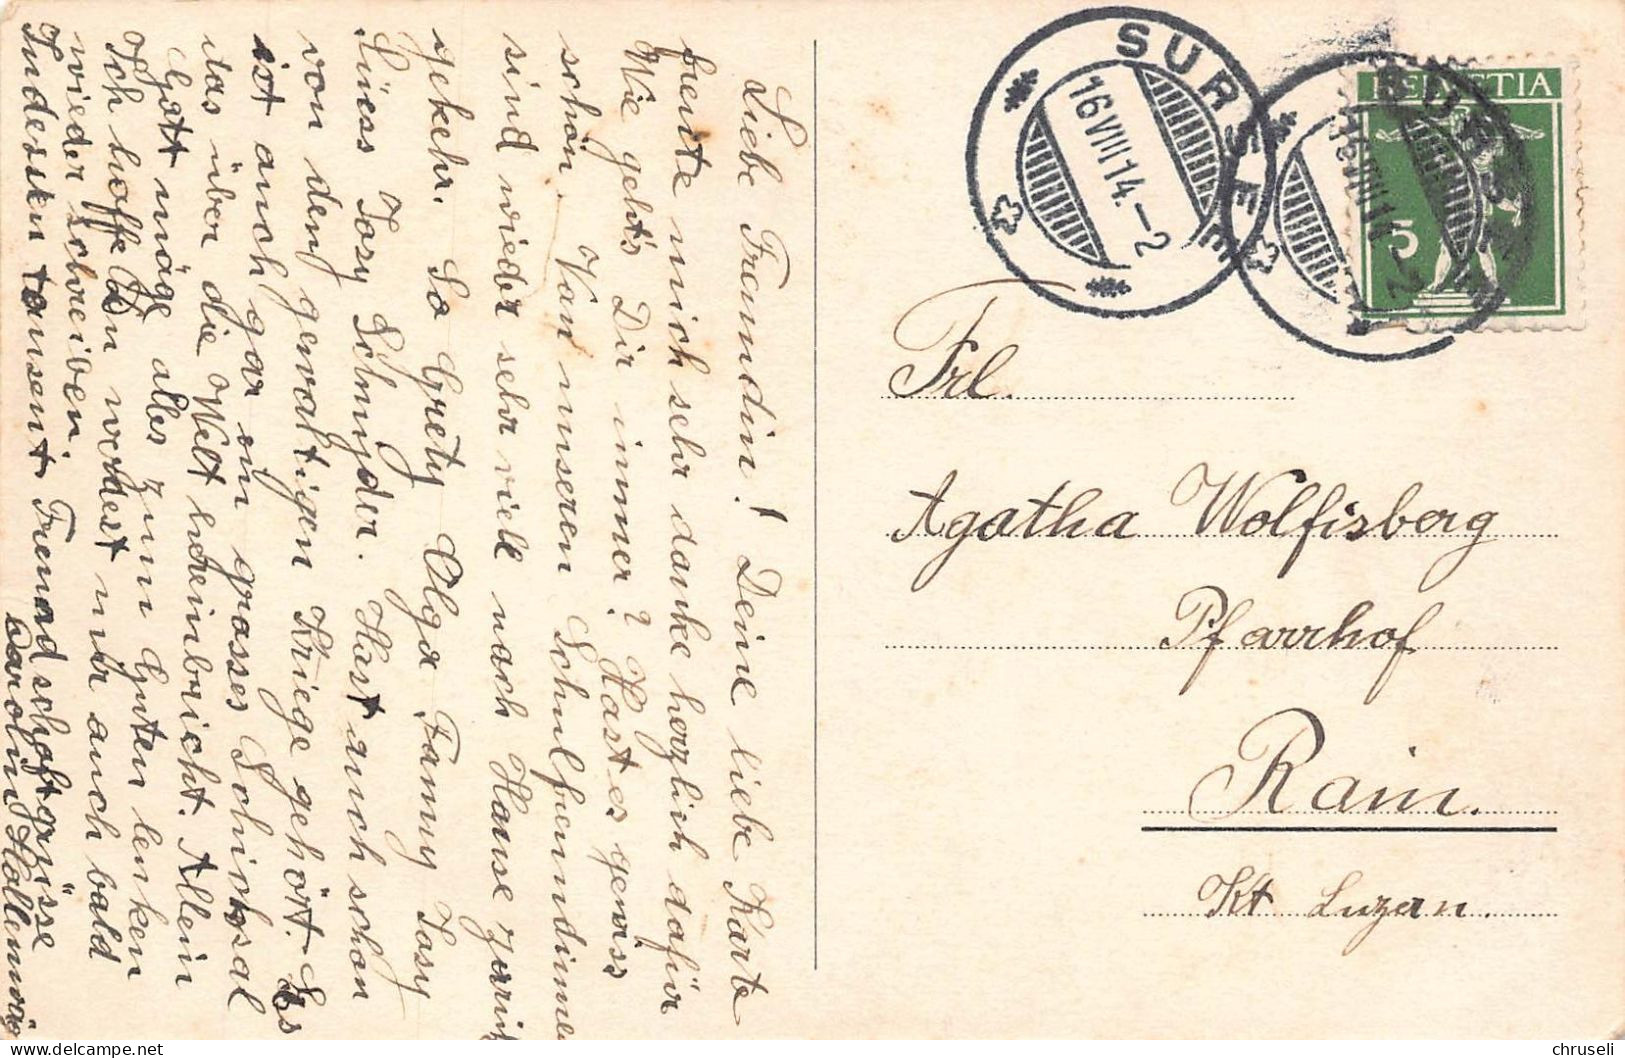 Liebe Freundin! Deine liebe Karte
freute mich sehr danke herzlich dafür
Wie geht's Dir immer? Hast es gewiss
schön. Von unseren Schulfreundinnen
sind wieder sehr viele nach Hause zurück
gekehr. So Grety Olga Fanny Josy
Josy Schnyder. Hast auch schon
von dem gewaltigen Kriege gehört. Es
ist auch gar ein grosses Schicksal
das über die Welt hereinbricht. Allein
Gott möge alles zum Guten lenken
Ich hoffe Du werdest mir auch bald
wieder schreiben.
Indessen tausent Freundschaftgrüsse
Carolin
SURSEE
16 VIII 14. – 2
SURSEE
16 VIII 14. – 2
HELVETIA
5
Frl.
Agatha Wolfisberg
Pfarrhof
Rain.
Kt Luzern.
chruseli